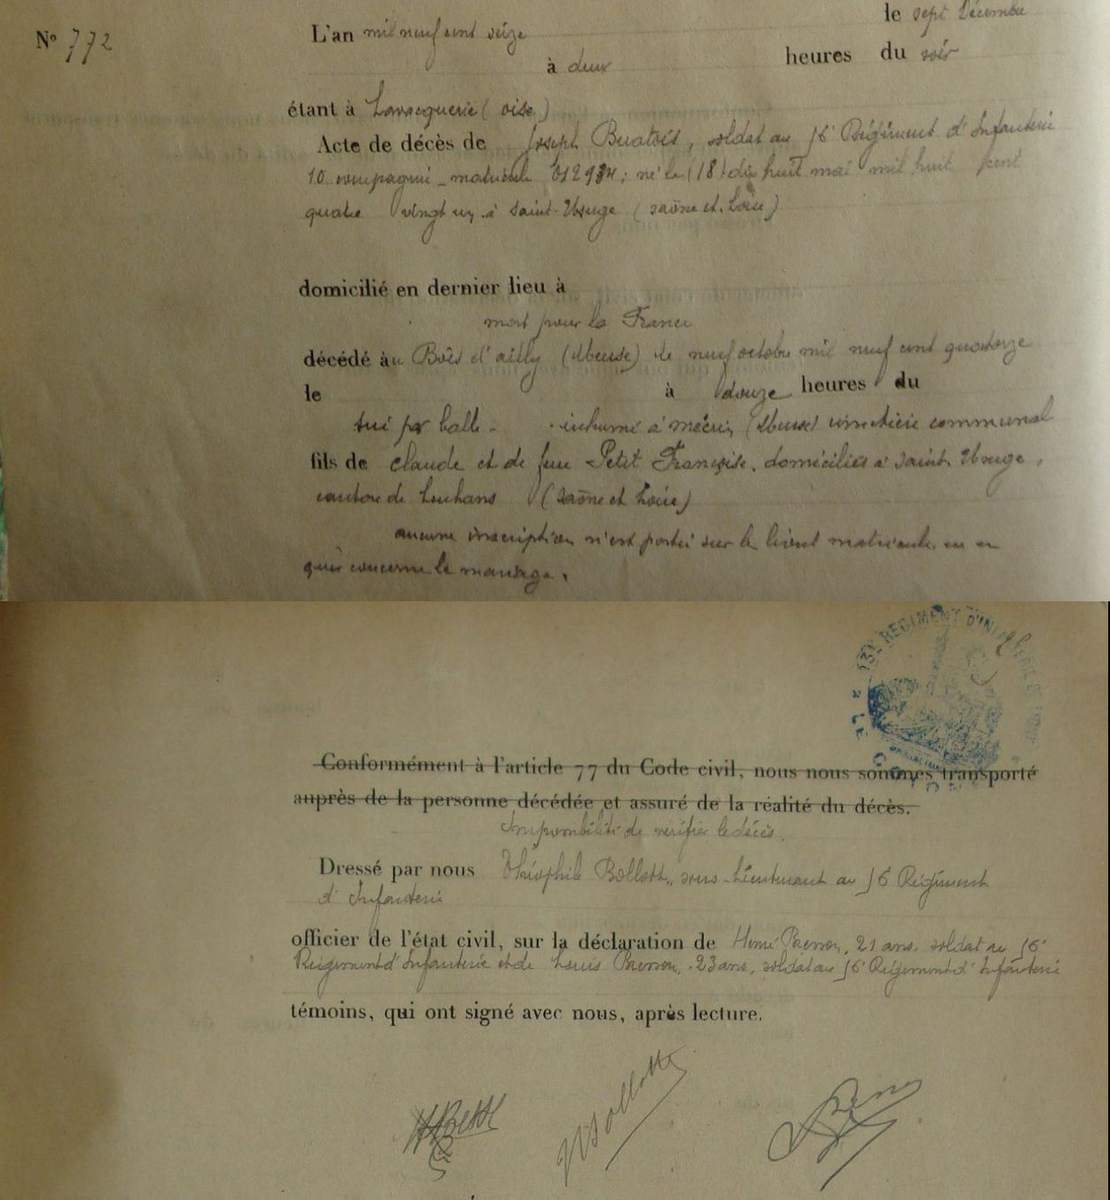 N° 772
L'an mil neuf cent seize le sept Décembre
à deux heures du soir
étant à Lavacquerie (oise)
Acte de décès de Joseph Buatois, soldat au 56 Régiment d'Infanterie
10 compagnie - matricule né le (18) dix huit mai mil huit cent
quatre vingt un à Saint-Usuge (saône et Loire)
domicilié en dernier lieu à
mort pour la France
décédé au Bois d'ailly (Meuse) le neuf octobre mil neuf cent quatorze
le à douze heures du
tué par balle - inhumé à mécrin (Meuse) cimetière communal
fils de claude et de feue Petit Françoise, domiciliés à saint Usuge,
canton de Louhans (saône et Loire)
aucune inscription n'est portée sur le livret matricule en ce
qui concerne le mariage.
REGIMENT D'INFANTERIE
Conformément à l'article 77 du Code civil, nous nous sommes transporté
auprès de la personne décédée et assuré de la réalité du décès.
Impossibilité de vérifier le décès.
Dressé par nous Théophile Bollotte, sous-Lieutenant au 56 Régiment
d'Infanterie
officier de l'état civil, sur la déclaration de Henri 21 ans, soldat au 56
Régiment d'Infanterie et de Louis 23 ans, soldat au 56 Régiment d'Infanterie
témoins, qui ont signé avec nous, après lecture.
Bollotte